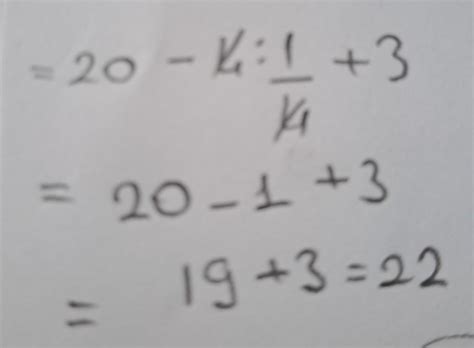 = 20 - 4 : 1/4 + 3
= 20 - 1 + 3
= 19 + 3 = 22